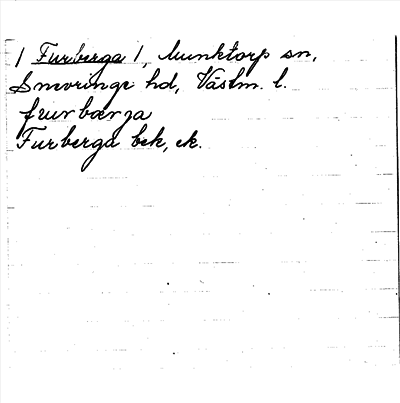 / Furberga /, Munktorp sn,
Snevringe hd, Västm. l.
furbærja
Furberga bek, ek.